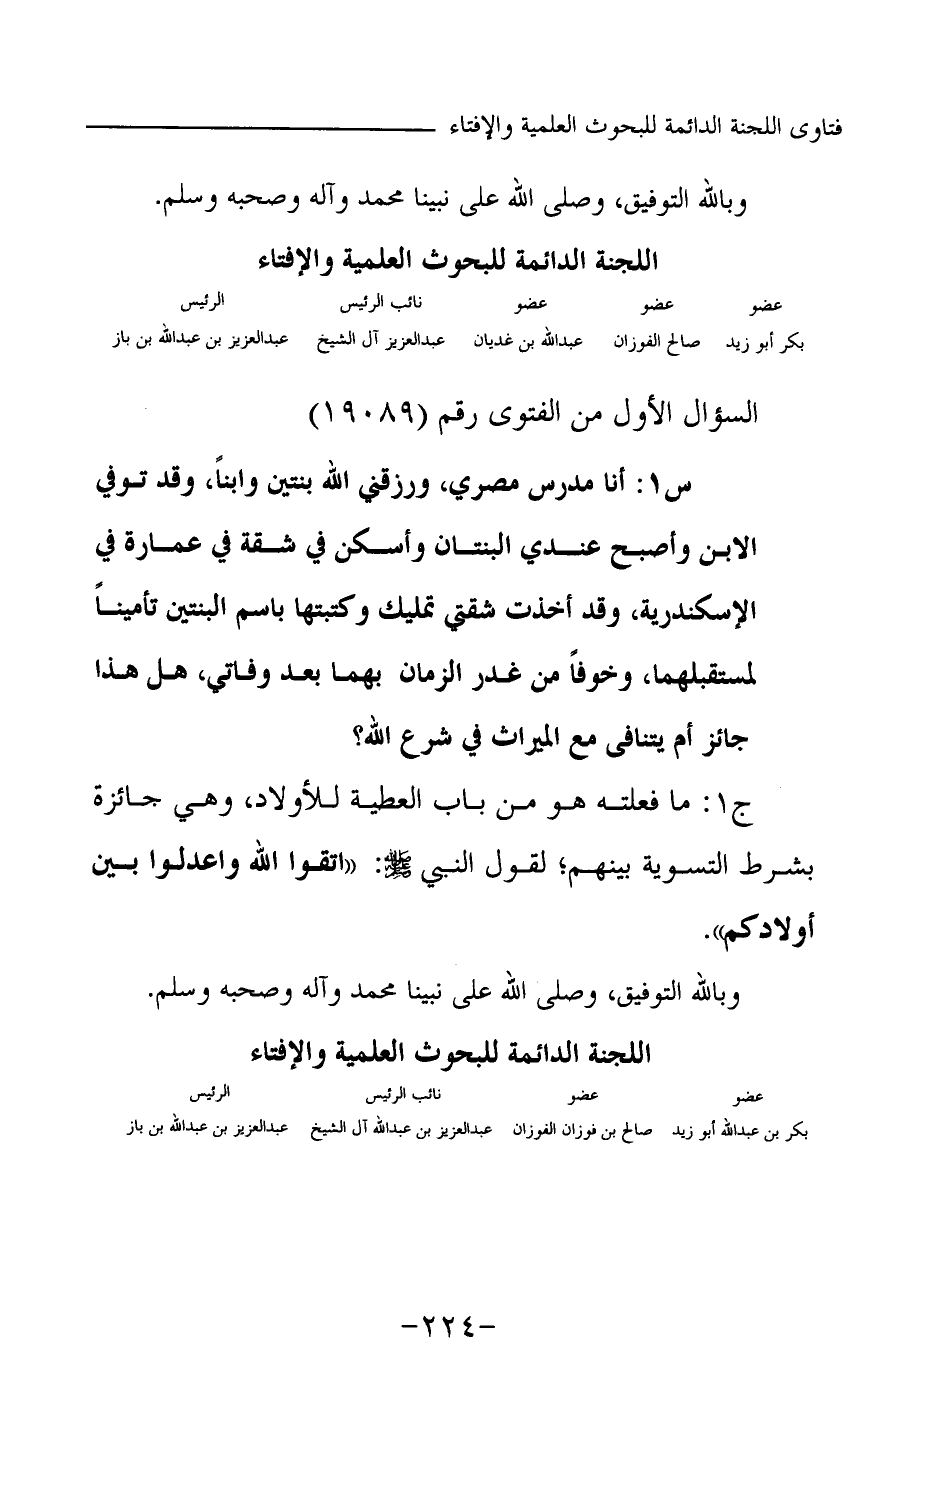 فتاوى اللجنة الدائمة للبحوث العلمية والإفتاء
وبالله التوفيق، وصلى الله على نبينا محمد وآله وصحبه وسلم.
اللجنة الدائمة للبحوث العلمية والإفتاء
عضو عضو عضو نائب الرئيس الرئيس
بكر أبو زيد صالح الفوزان عبدالله بن غديان عبدالعزيز آل الشيخ عبدالعزيز بن عبدالله بن باز
السؤال الأول من الفتوى رقم (١٩٠٨٩)
س١: أنا مدرس مصري، ورزقني الله بنتين وابناً، وقد توفي
الابن وأصبح عندي البنتان وأسكن في شقة في عمارة في
الإسكندرية، وقد أخذت شقتي تمليك وكتبتها باسم البنتين تأميناً
لمستقبلهما، وخوفاً من غدر الزمان بهما بعد وفاتي، هل هذا
جائز أم يتنافى مع الميراث في شرع الله؟
ج١: ما فعلته هو من باب العطية للأولاد، وهي جائزة
بشرط التسوية بينهم؛ لقول النبي ﷺ: «اتقوا الله واعدلوا بين
أولادكم».
وبالله التوفيق، وصلى الله على نبينا محمد وآله وصحبه وسلم.
اللجنة الدائمة للبحوث العلمية والإفتاء
عضو عضو نائب الرئيس الرئيس
بكر بن عبدالله أبو زيد صالح بن فوزان الفوزان عبدالعزيز بن عبدالله آل الشيخ عبدالعزيز بن عبدالله بن باز
-٢٢٤-